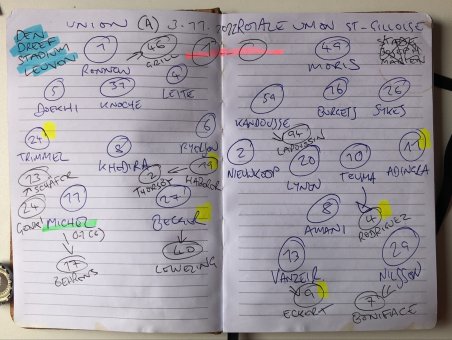 UNION (A) 3.11.2022
DEN
DREEF
STADIUM
LEUVEN
1
RONNOW
46
GRILL
5
DOEKHI
31
KNOCHE
4
LEITE
6
RYERSON
24
TRIMMEL
8
KHEDIRA
19
HABERER
2
THORSBY
13
SCHÄFER
24
11
MICHEL
0-1 (6)
27
BECKER
17
BEHRENS
40
LEWELING
ROYALE UNION ST-GILLOISE
49
MORIS
59
KANDOUSSE
16
BURGESS
26
SYKES
94
LAPOUSSIN
2
NIEUWKOOP
20
LYNEN
10
TEUMA
11
ADINGRA
8
AMANI
4
RODRIGUEZ
13
VANZEIR
29
NILSSON
9
ECKERT
7
BONIFACE